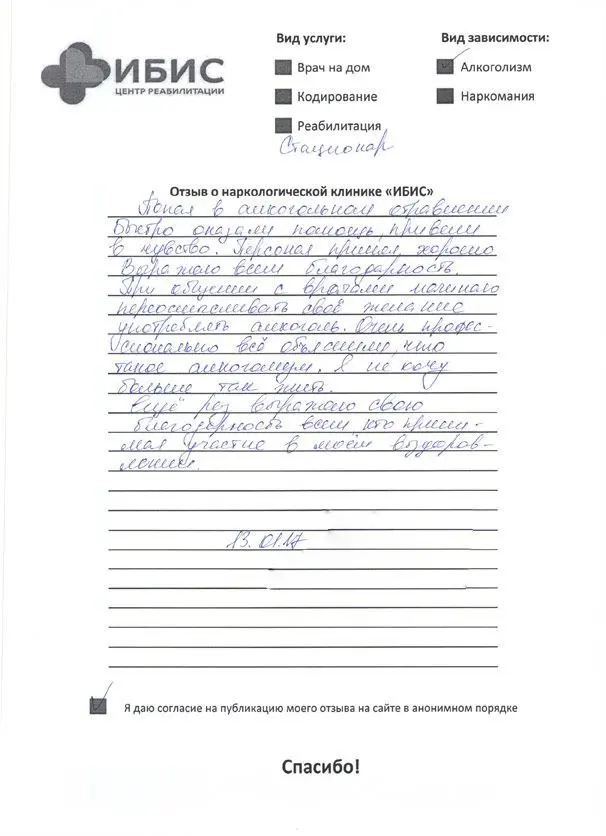 ИБИС
ЦЕНТР РЕАБИЛИТАЦИИ
Вид услуги:
Врач на дом
Кодирование
Реабилитация
Стационар
Вид зависимости:
Алкоголизм
Наркомания
Отзыв о наркологической клинике «ИБИС»
Попал в алкогольном отравлении
Быстро оказали помощь, привели
в чувство. Персонал принял хорошо
Выражаю всем благодарность.
При общении с врачами начинаю
переосмысливать своё желание
употреблять алкоголь. Очень профес-
сионально всё объяснили, что
такое алкоголизм. Я не хочу
больше так жить.
Ещё раз выражаю свою
благодарность всем кто прини-
мал участие в моём выздоров-
лении.
13.01.17
Я даю согласие на публикацию моего отзыва на сайте в анонимном порядке
Спасибо!